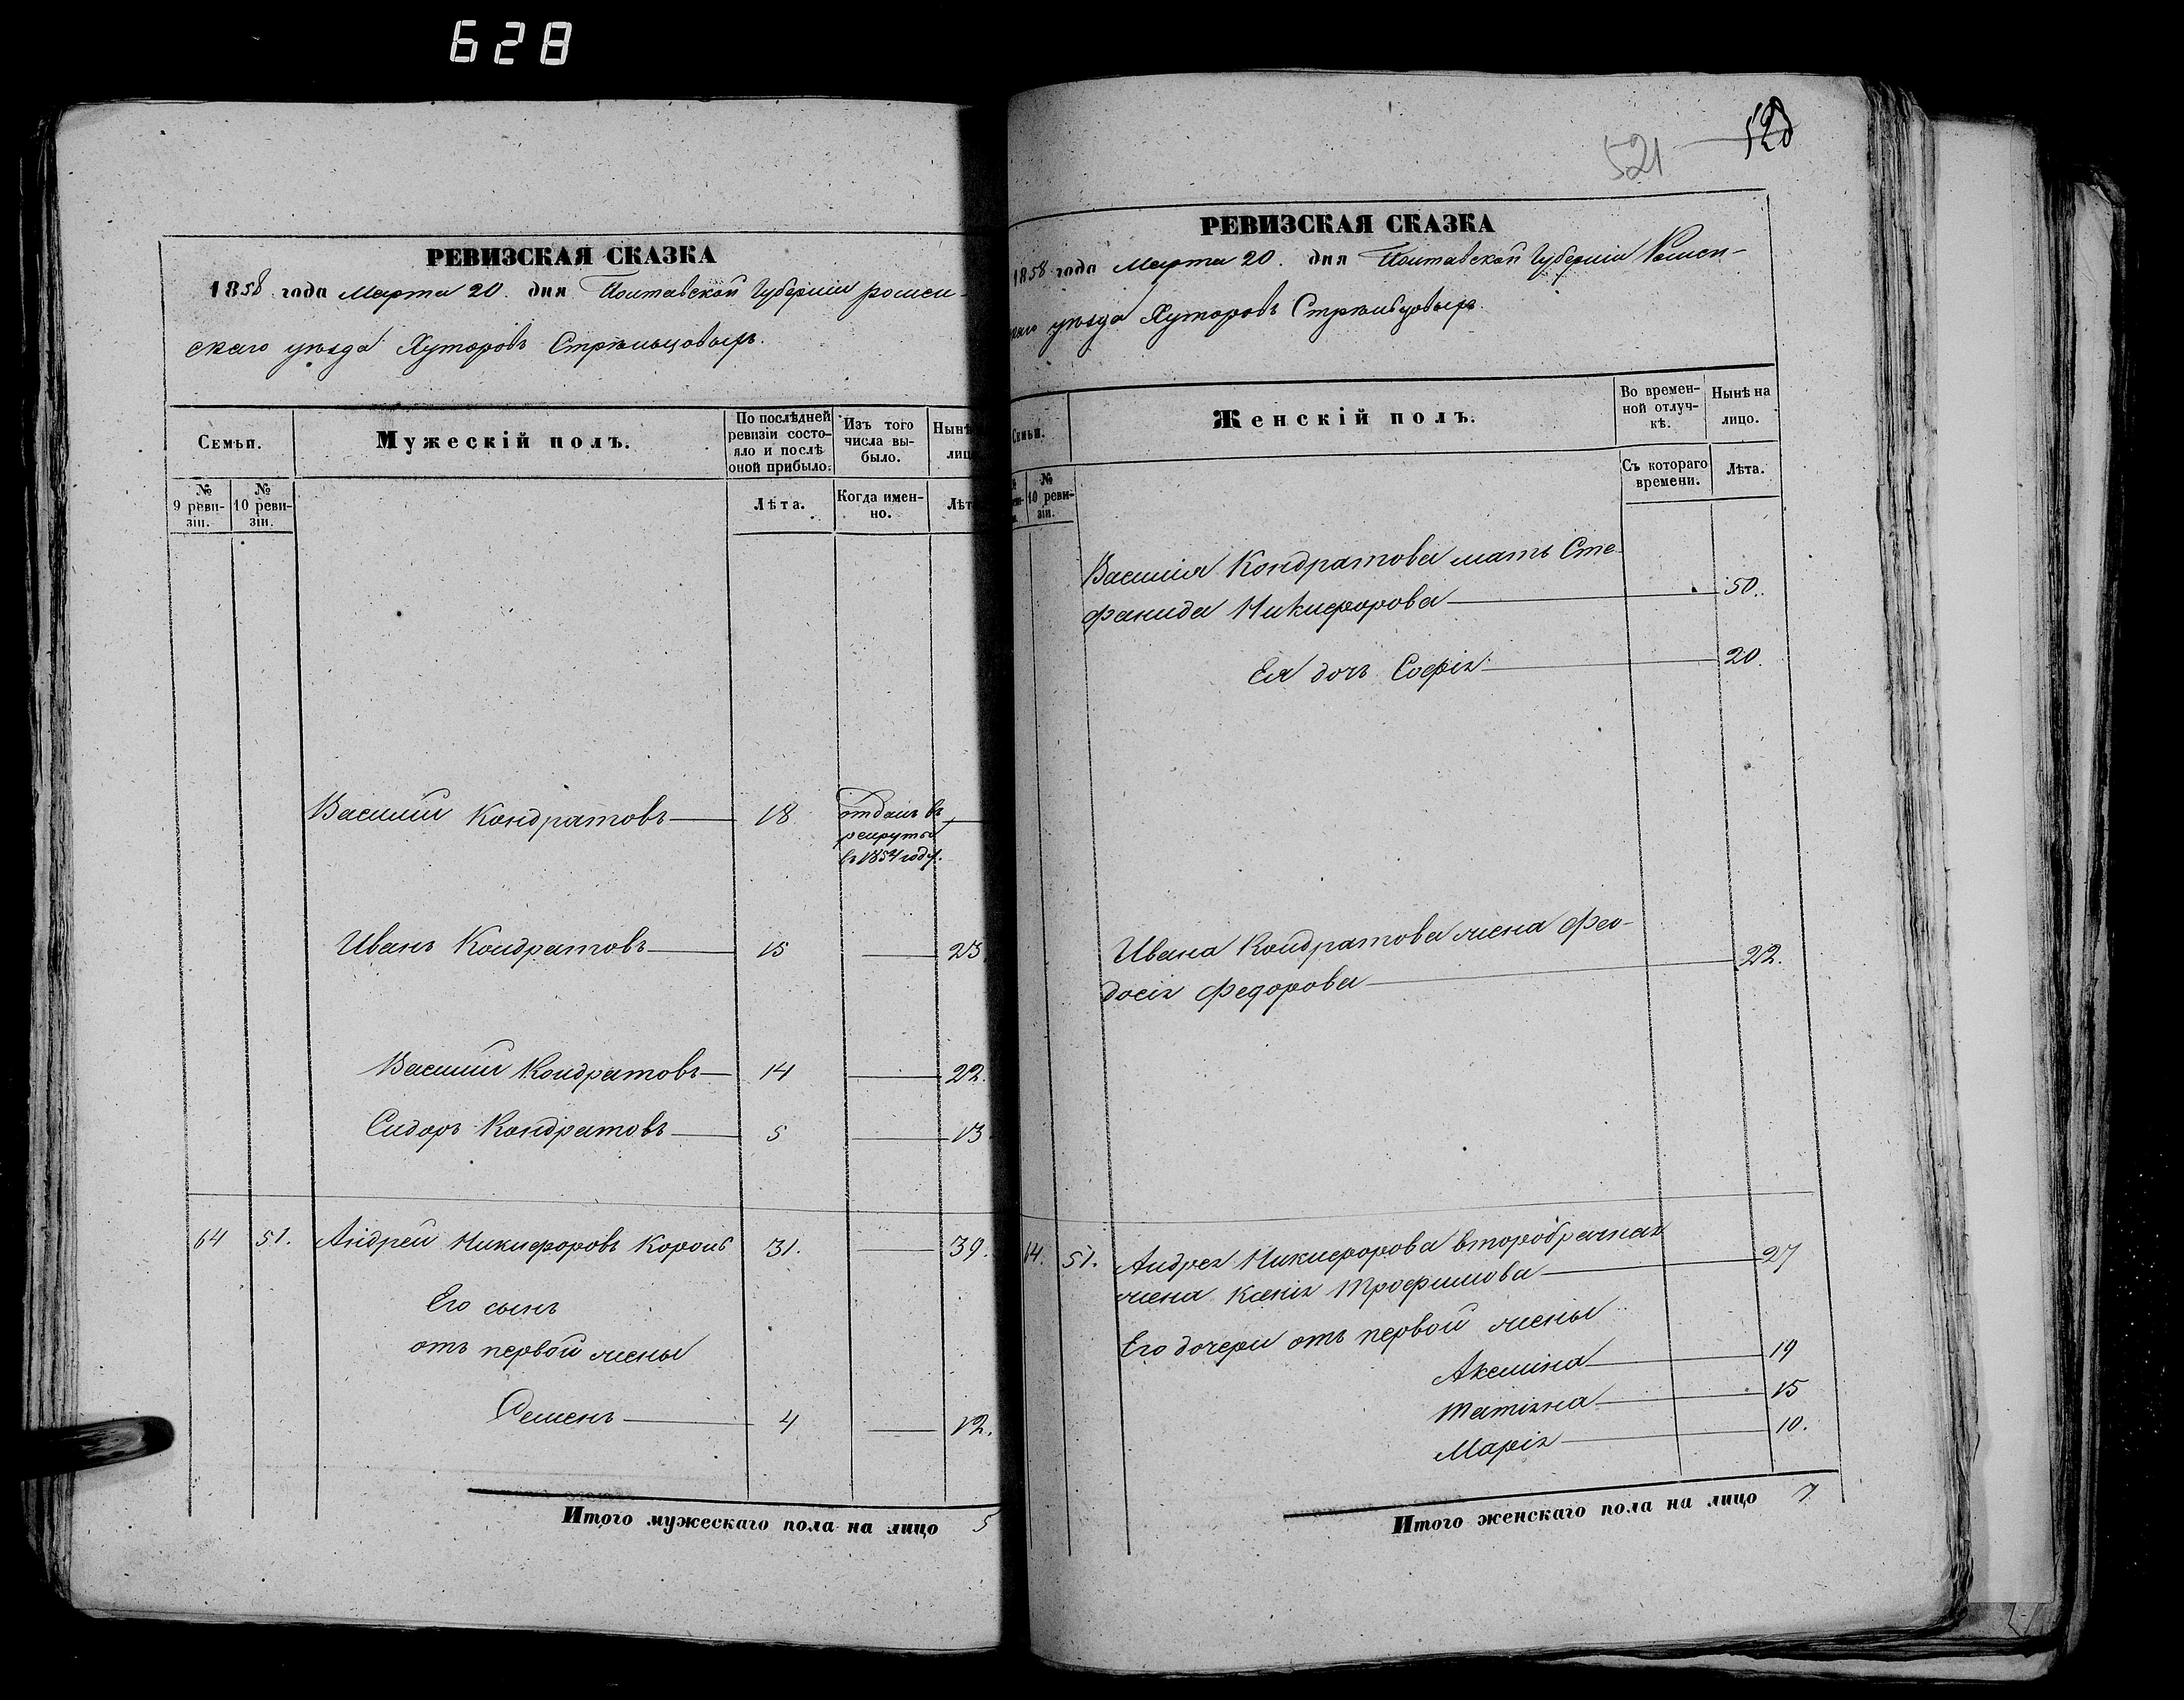 628
РЕВИЗСКАЯ СКАЗКА
1858 года Марта 20. дня Полтавской Губерніи ромен-
скаго уѣзда Хуторовъ Стрѣльцовыхъ.
Семьи.
Мужескій полъ.
По послѣдней ревизіи состо-
яло и послѣ оной прибыло.
Изъ того числа вы-
было.
Нынѣ
лиц
№ 9 реви-
зіи.
№ 10 реви-
зіи.
Лѣта.
Когда имен-
но.
Лѣт
Василій Кондратовъ 18 отданъ въ
рекруты
въ 1854 году.
Иванъ Кондратовъ 15 23
Василій Кондратовъ 14 22.
Сидоръ Кондратовъ 5 13
64 51. Андрей Никифоровъ Король 31. 39.
Его сынъ
отъ первой жены
Семенъ 4 12.
Итого мужескаго пола на лицо 5
521 520
РЕВИЗСКАЯ СКАЗКА
1858 года Марта 20. дня Полтавской Губерніи Ромен-
скаго уѣзда Хуторовъ Стрѣльцовыхъ.
Семьи.
Женскій полъ.
Во времен-
ной отлуч-
кѣ.
Нынѣ на
лицо.
№ 10 реви-
зіи.
Съ котораго
времени.
Лѣта.
Василія Кондратова мать Сте-
фанида Никифорова 50.
Ея дочь Софія 20.
Ивана Кондратова жена Фео-
досія Федорова 22.
64. 51. Андрея Никифорова второбрачная
жена Ксенія Трофимова 27
Его дочери отъ первой жены
Аксинia 19
Татіяна 15
Марія 10.
Итого женскаго пола на лицо 7